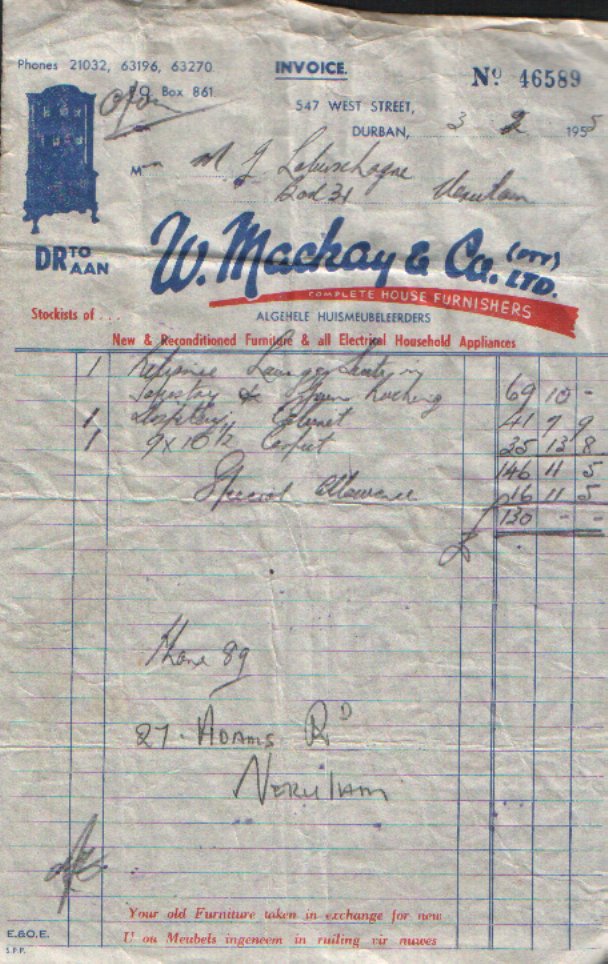 Phones 21032, 63196, 63270
INVOICE.
No 46589
Box 861
547 WEST STREET,
DURBAN, 3 2 1955
M
M J Labuschagne
Box 31 Verulam
DR TO
AAN
W. Mackay & Co. (PTY) LTD.
COMPLETE HOUSE FURNISHERS
ALGEHELE HUISMEUBELEERDERS
Stockists of . . .
New & Reconditioned Furniture & all Electrical Household Appliances
1 Reliance Lounge Suite in
Tapestry & 69 10 -
1 Cabinet 41 7 9
1 9 x 10½ Carpet 35 13 8
146 11 5
Special Allowance 16 11 5
£ 130 - -
Phone 89
27 . ADAMS RD
VERULAM
Your old Furniture taken in exchange for new
U ou Meubels ingeneem in ruiling vir nuwes
E.&O.E.
S.P.P.